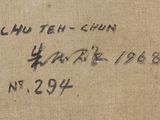 CHU TEH-CHUN
朱德群 1968
Nº. 294